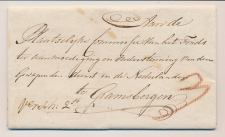 Aan de
Plaatselijke Commissie van het Fonds
ter aanmoediging en ondersteuning van den
Gewapenden Dienst in de Nederlanden
te Gramsbergen
3